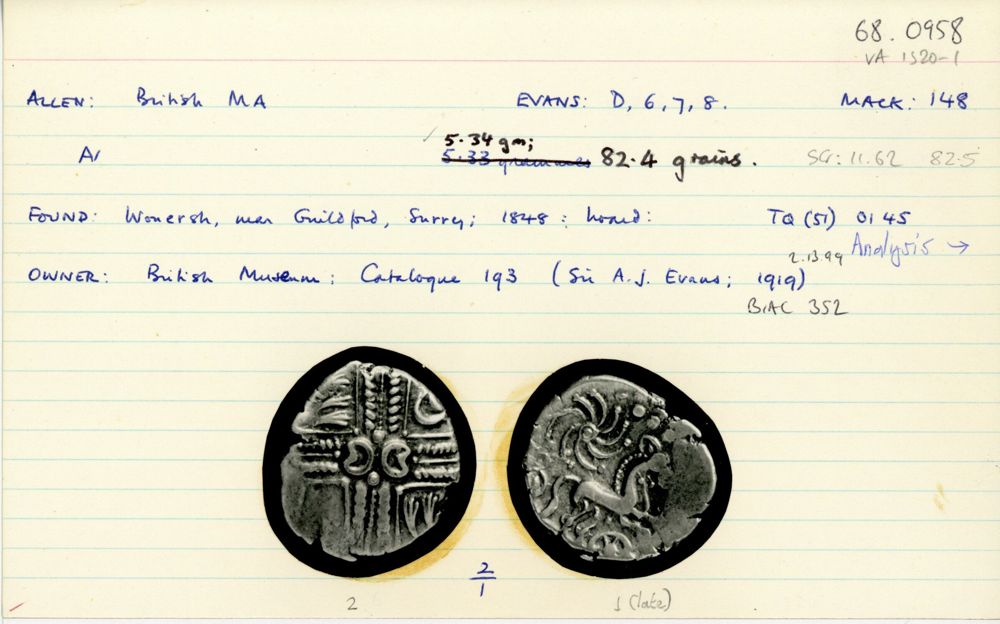 68.0958
VA 1520-1
ALLEN: British MA EVANS: D, 6, 7, 8. MACK: 148
5.34 gm;
A/ 5.33 grammes 82.4 grains. SG: 11.62 82.5
FOUND: Wonersh, near Guildford, Surrey; 1848: hoard: TQ (51) 0145
2.13.99 Analysis →
OWNER: British Museum; Catalogue 193 (Sir A.J. Evans; 1919)
BMC 352
2/1
2 1 (late)